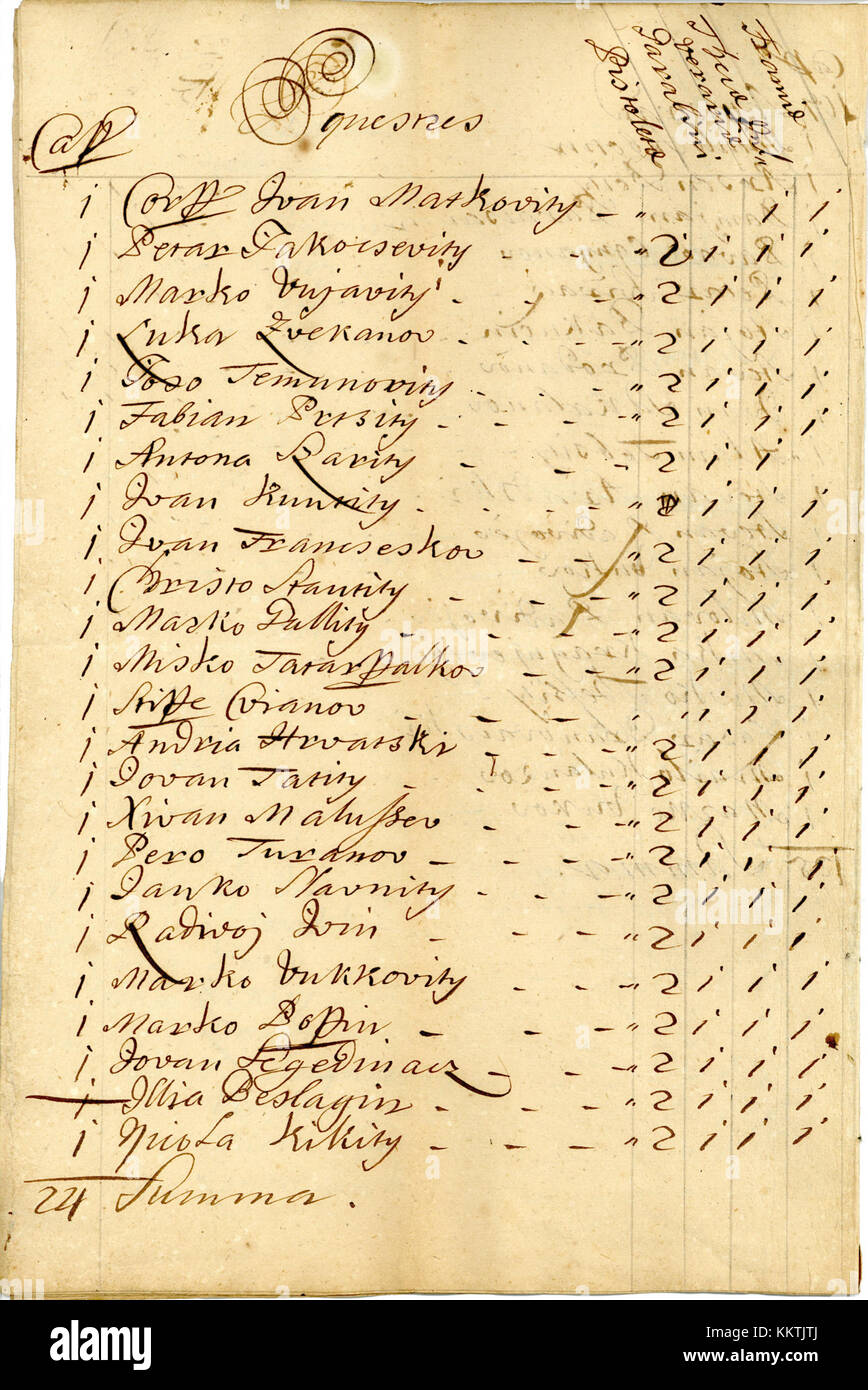 Equestres
Cap
Pistoleta
1 Corp Ivan Matkovity - " 1 1
1 Petar Jakocsevity - - " 2 1 1 1
1 Marko Vujavity - - - " 2 1 1 1
1 Luka Zvekanov - - - " 2 1 1 1
1 Joso Temunovity - - - " 2 1 1 1
1 Fabian Prtsity - - - " 2 1 1 1
1 Antona Barity - - - " 2 1 1
1 Ivan Kuntity - - - " 2 1 1 1
1 Ivan Francseskov - - " 2 1 1 1
1 Christo Stantity - - - " 2 1 1 1
1 Marko Pallity - - - " 2 1 1 1
1 Misko Tatar Palkov - - " 2 1 1 1
1 Stipe Cvianov - - - " " 1 1 1
1 Andria Hrvatski - - " 2 1 1 1
1 Jovan Tatity - - - " 2 1 1 1
1 Xivan Malussev - - - " 2 1 1 1
1 Pero Turanov - - - " 2 1 1 1
1 Janko Slavnity - - - " 2 1 1 1
1 Radivoj Ivin - - - " 2 1 1 1
1 Marko Vukkovity - - - " 2 1 1 1
1 Marko Popin - - - " 2 1 1 1
1 Jovan Segedinacz - - " 2 1 1 1
1 Illia Beslagin - - - " 2 1 1 1
1 Nicola Kikity - - - " 2 1 1 1
24 Summa.
alamy
Image ID: KKTJTJ
www.alamy.com